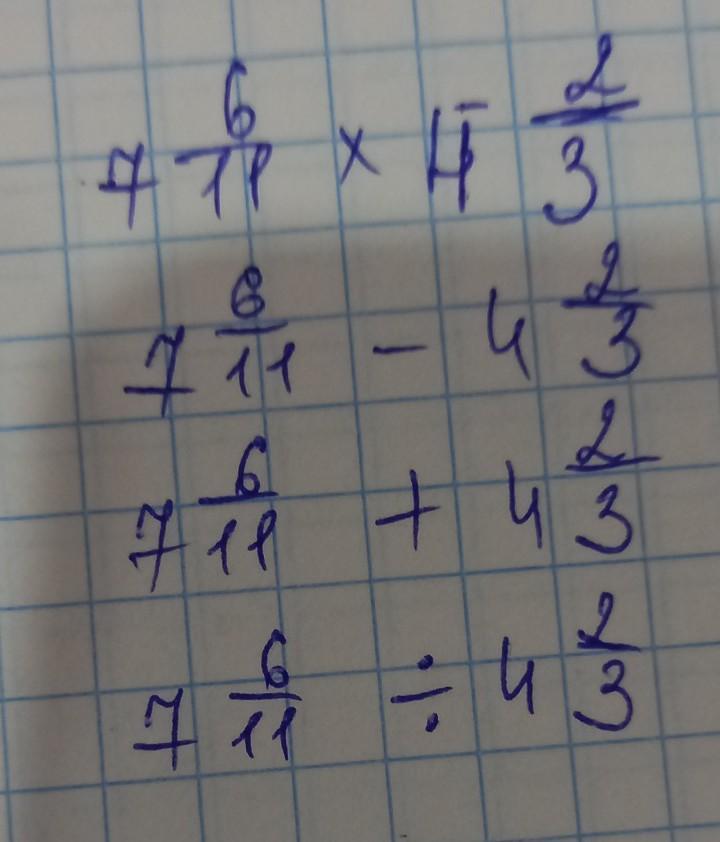 7 6/11 × 4 2/3
7 6/11 - 4 2/3
7 6/11 + 4 2/3
7 6/11 ÷ 4 2/3